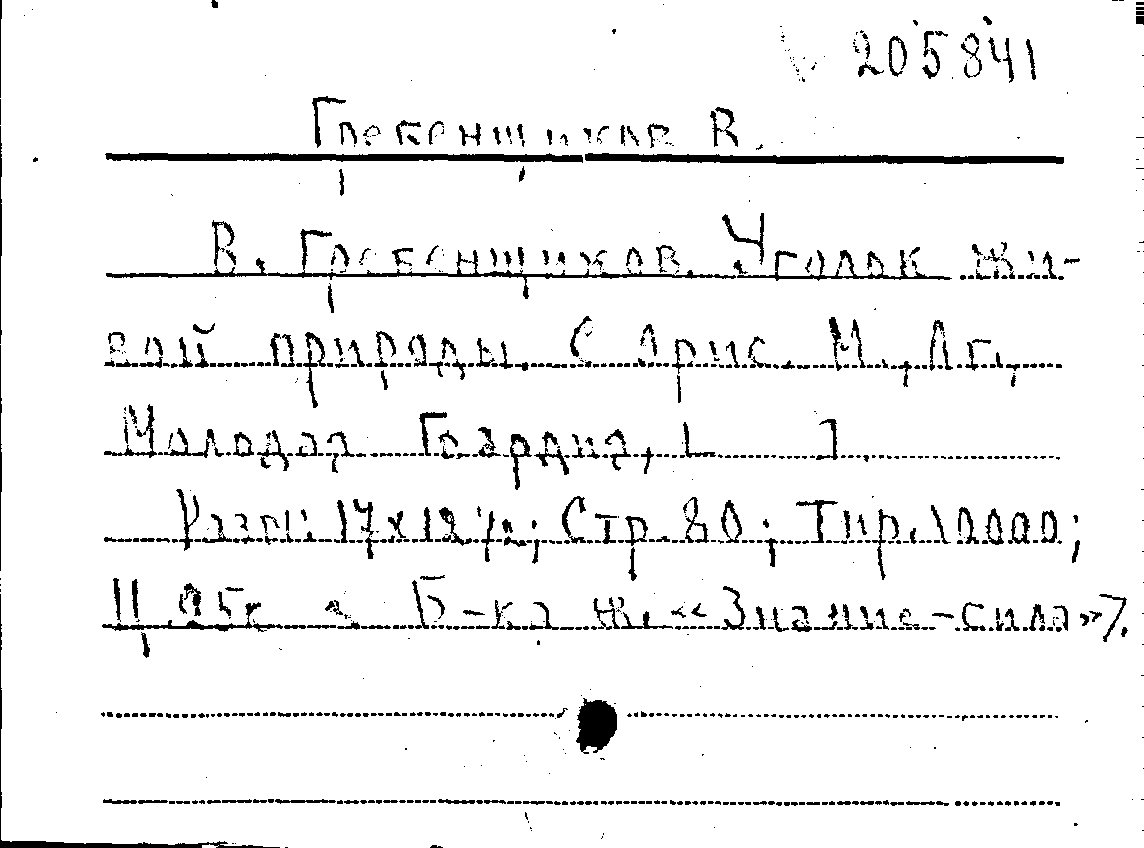 205841
Гребенщиков В.
В. Гребенщиков. Уголок жи-
вой природы. С 9 рис. М., Лг.,
Молодая Гвардия, [ ].
Разм. 17х12 1/2; Стр. 80; Тир. 10000;
Ц. 25к Б-ка ж. «Знание-сила»7.